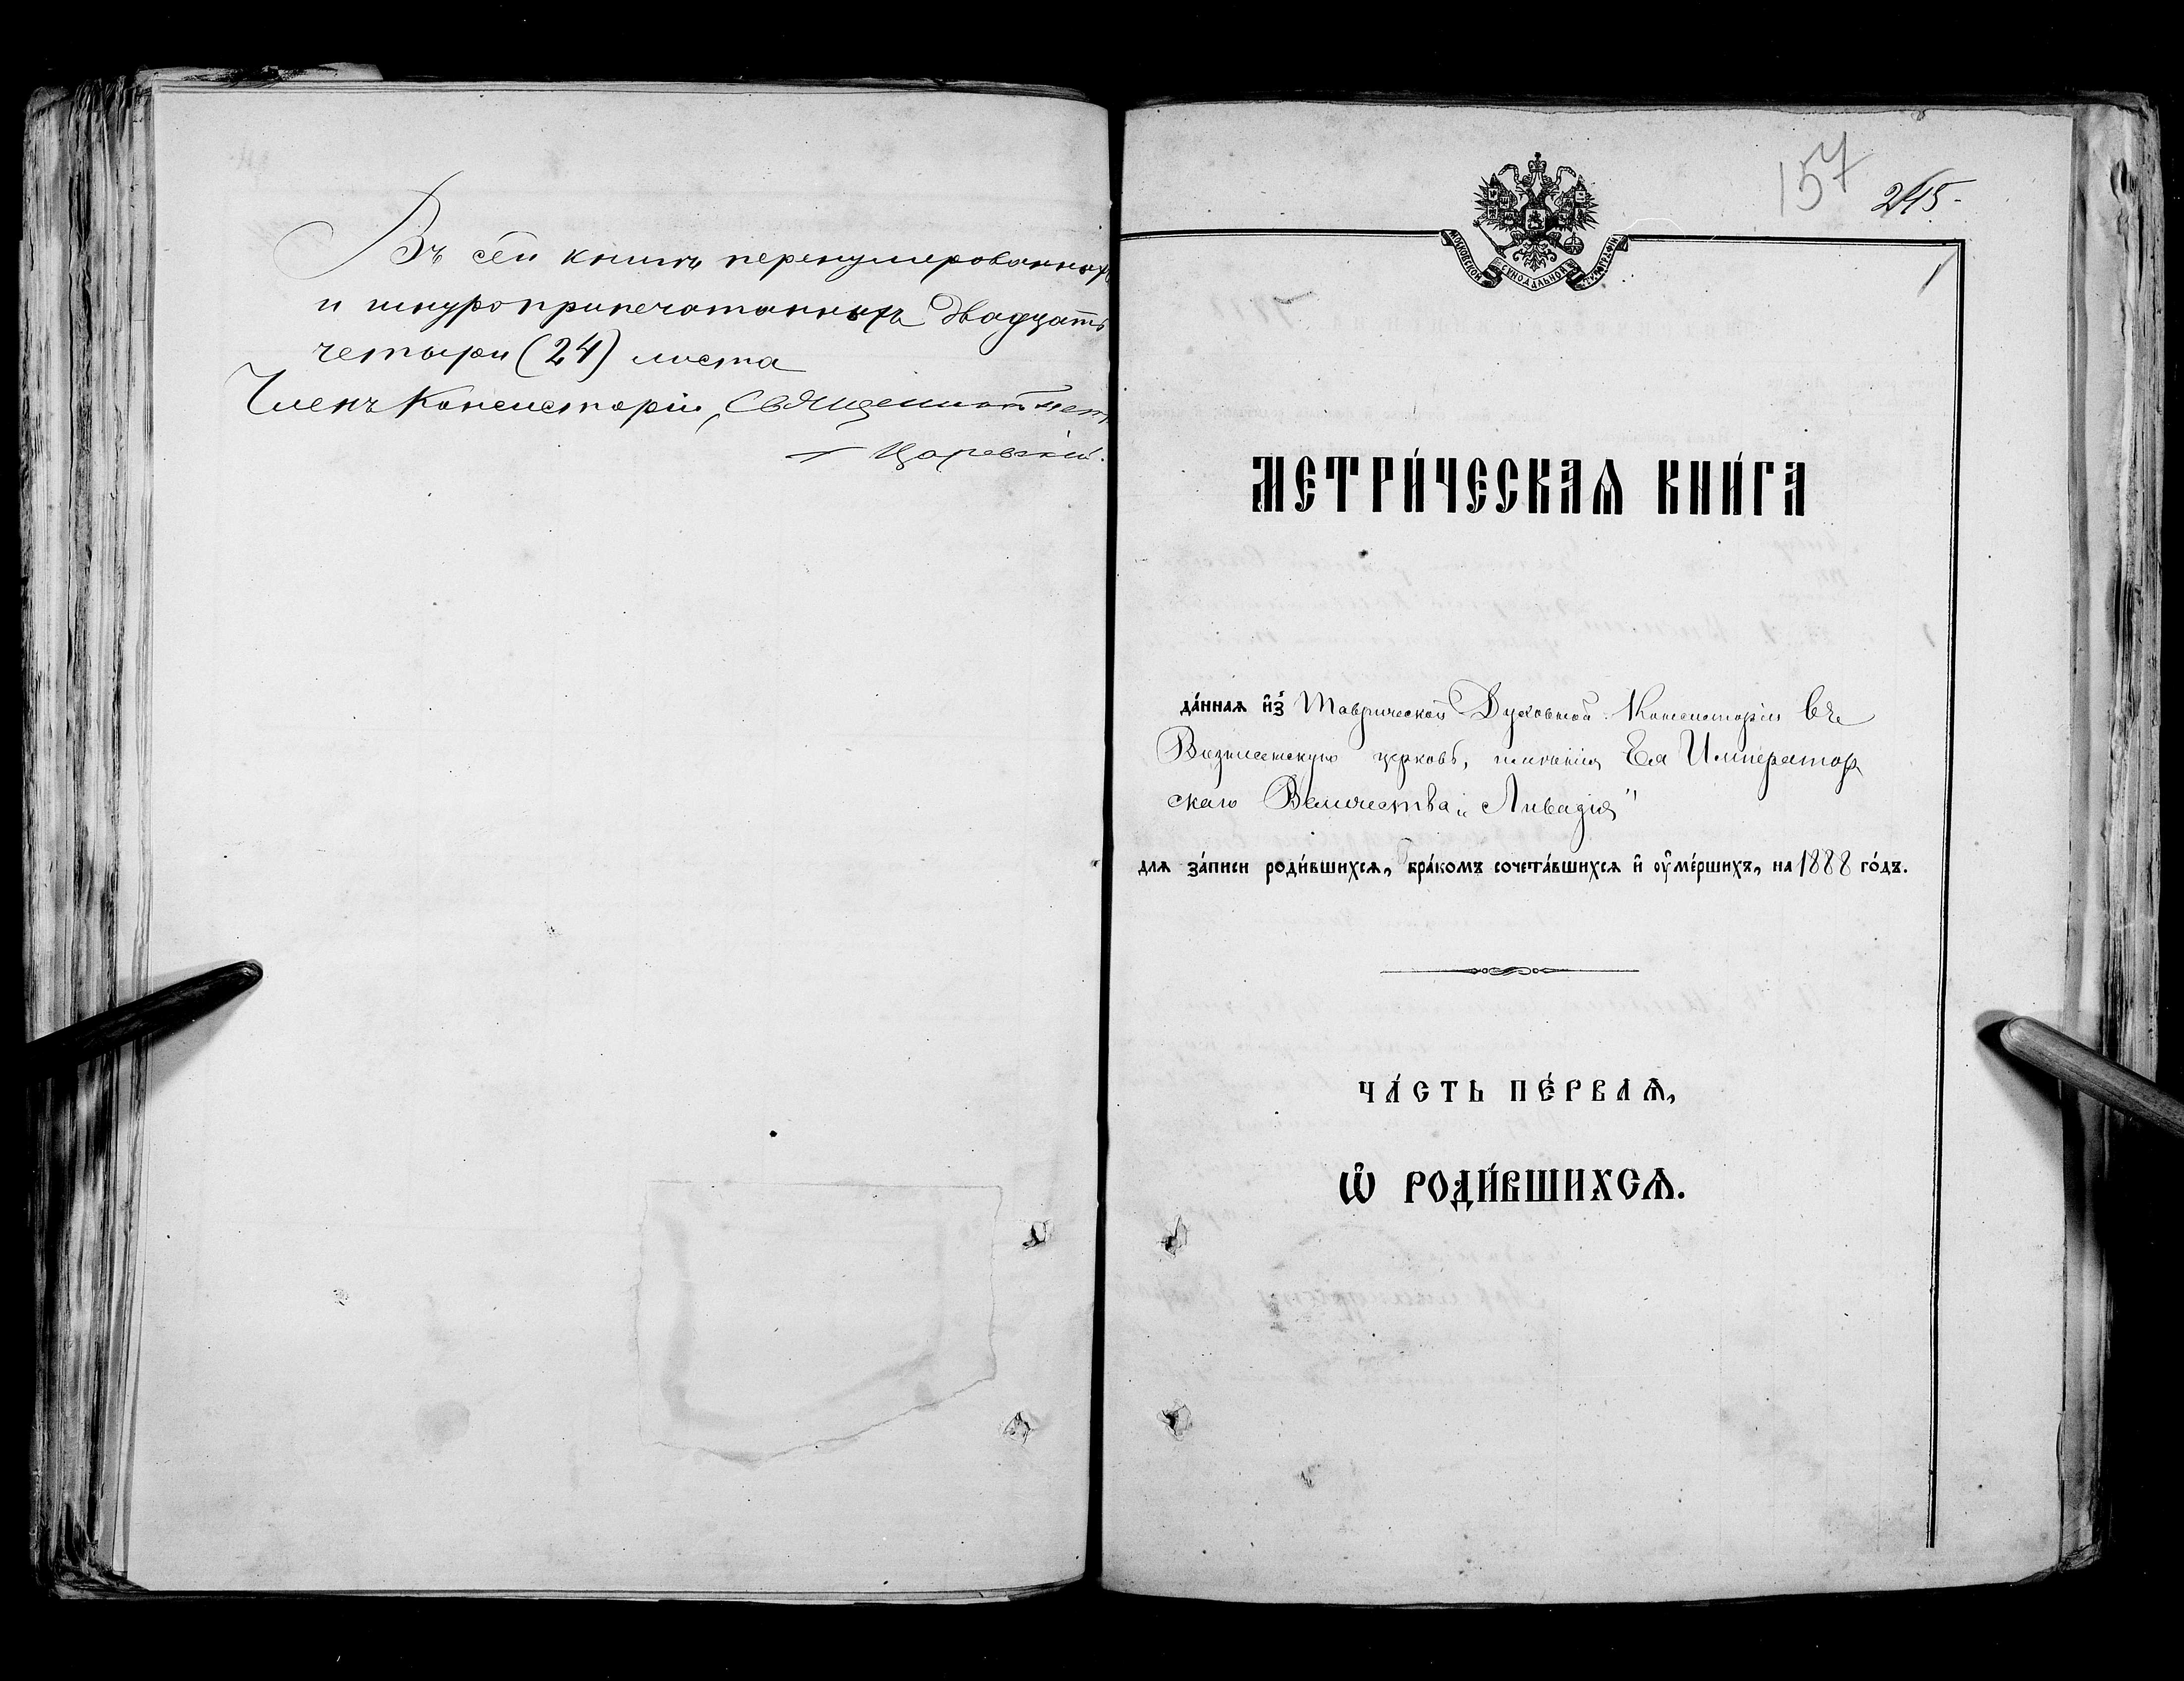 Въ сей книгѣ перенумерованныхъ
и шнуроприпечатанныхъ двадцать
четыре (24) листа
Членъ Консисторіи, Священникъ
Царевскій.
157
245.
1
МОСКОВСКОЙ СѴНОДАЛЬНОЙ ТИПОГРАФІИ
МЕТРИ́ЧЕСКАѦ КНИ́ГА
да́ннаѧ и҆з̾ Таврической Духовной Консисторіи въ
Вознесенскую церковь, имѣнія Ея Император
скаго Величества „Ливадія"
длѧ за́писи роди́вшихсѧ, бра́комъ сочета́вшихсѧ и҆ ᲂу҆ме́ршихъ, на 1888 го́дъ.
ЧА́СТЬ ПЕ́РВАѦ,
Ѽ РОДИ́ВШИХСѦ.